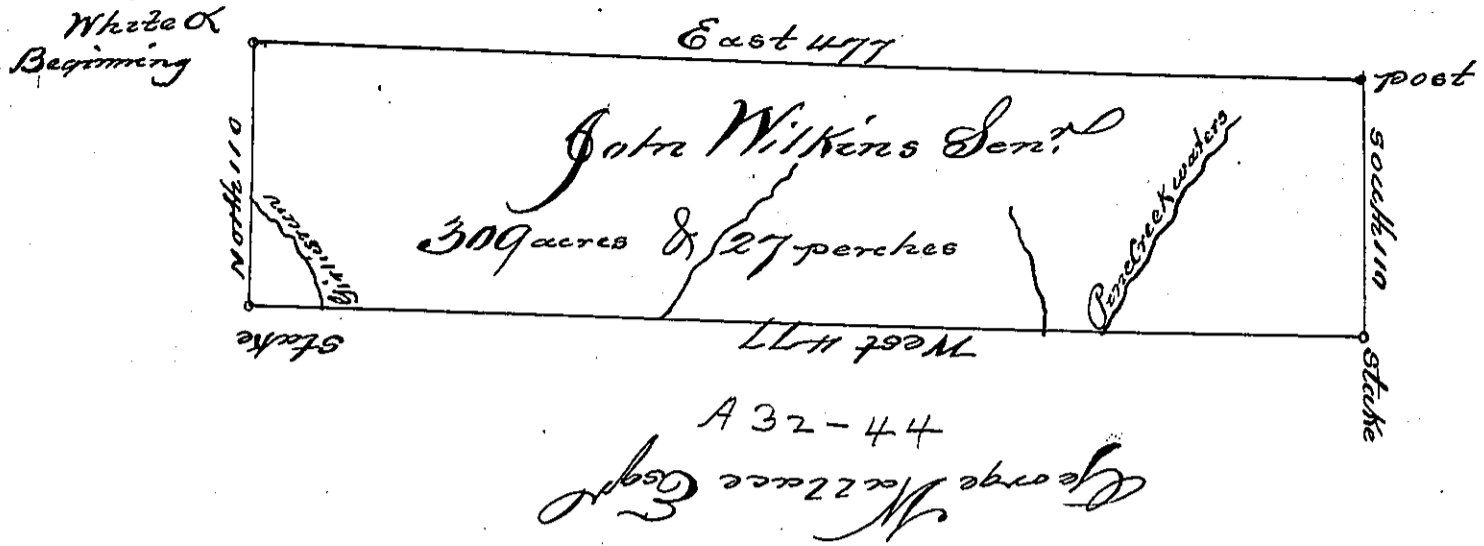 White O
Beginning
East 477
post
North 110
John Wilkins Senr.
South 110
309 acres & 27 perches
Pine Creek waters
Stake
West 477
stake
A 32-44
George Wallace Esqr